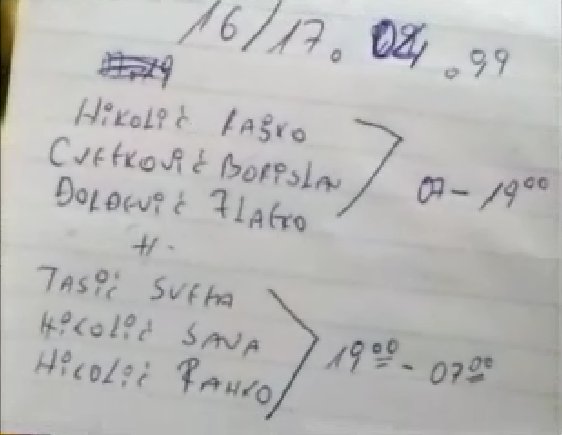 16/17. 04. 99
Nikolić Laśko
Cvetković Borislav
Zlatko
07 - 19⁰⁰
Tasić Sveta
Nikolić Sava
Nikolić Ranko
19⁰⁰ - 07⁰⁰